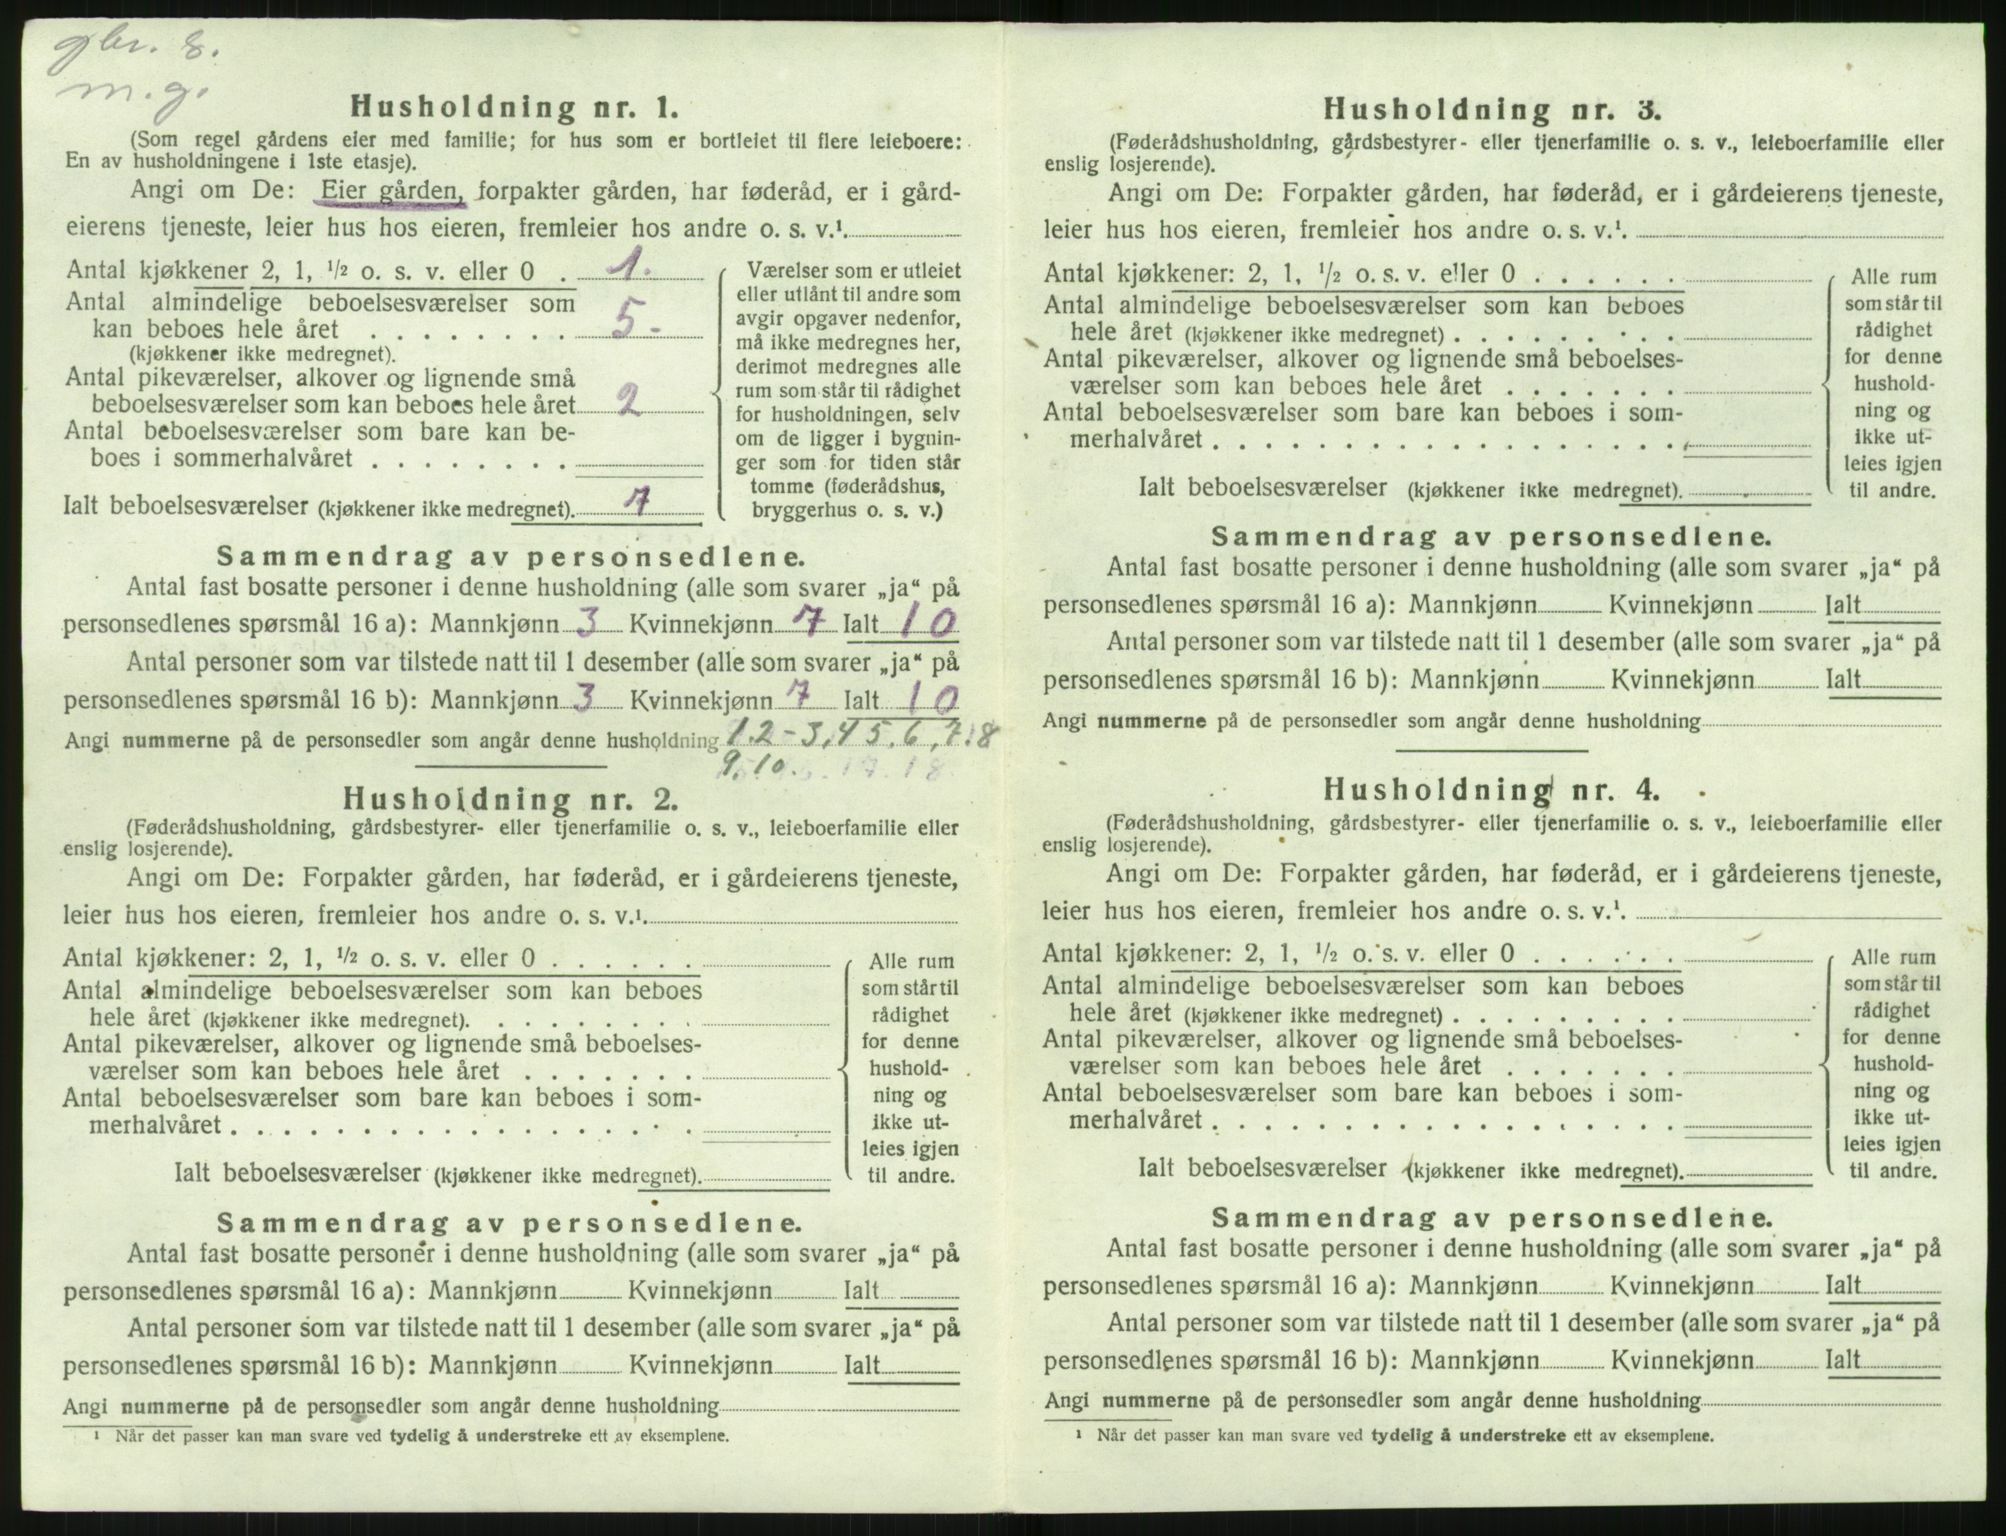 gbr. 8.
m.g.
Husholdning nr. 1.
(Som regel gårdens eier med familie; for hus som er bortleiet til flere leieboere:
En av husholdningene i 1ste etasje).
Angi om De: Eier gården, forpakter gården, har føderåd, er i gård-
eierens tjeneste, leier hus hos eieren, fremleier hos andre o. s. v.¹.
Antal kjøkkener 2, 1, ½ o. s. v. eller 0 . 1.
Antal almindelige beboelsesværelser som
kan beboes hele året . . . . . . . . 5-
(kjøkkener ikke medregnet).
Antal pikeværelser, alkover og lignende små
beboelsesværelser som kan beboes hele året 2
Antal beboelsesværelser som bare kan be-
boes i sommerhalvåret . . . . . . . .
Ialt beboelsesværelser (kjøkkener ikke medregnet). 7
Værelser som er utleiet
eller utlånt til andre som
avgir opgaver nedenfor,
må ikke medregnes her,
derimot medregnes alle
rum som står til rådighet
for husholdningen, selv
om de ligger i bygnin-
ger som for tiden står
tomme (føderådshus,
bryggerhus o. s. v.)
Sammendrag av personsedlene.
Antal fast bosatte personer i denne husholdning (alle som svarer „ja“ på
personsedlenes spørsmål 16 a): Mannkjønn 3 Kvinnekjønn 7 Ialt 10
Antal personer som var tilstede natt til 1 desember (alle som svarer „ja“ på
personsedlenes spørsmål 16 b): Mannkjønn 3 Kvinnekjønn 7 Ialt 10
Angi nummerne på de personsedler som angår denne husholdning 1.2-3,4 5.6,7.8
9.10.
Husholdning nr. 2.
(Føderådshusholdning, gårdsbestyrer- eller tjenerfamilie o. s. v., leieboerfamilie eller
enslig losjerende).
Angi om De: Forpakter gården, har føderåd, er i gårdeierens tjeneste,
leier hus hos eieren, fremleier hos andre o. s. v.¹.
Antal kjøkkener: 2, 1, ½ o. s. v. eller 0 . . . . . .
Antal almindelige beboelsesværelser som kan beboes
hele året (kjøkkener ikke medregnet). . . . . . . . .
Antal pikeværelser, alkover og lignende små beboelses-
værelser som kan beboes hele året . . . . . . .
Antal beboelsesværelser som bare kan beboes i som-
merhalvåret . . . . . . . . . . . . . . . . . .
Ialt beboelsesværelser (kjøkkener ikke medregnet).
Alle rum
som står til
rådighet
for denne
hushold-
ning og
ikke ut-
leies igjen
til andre.
Sammendrag av personsedlene.
Antal fast bosatte personer i denne husholdning (alle som svarer „ja“ på
personsedlenes spørsmål 16 a): Mannkjønn Kvinnekjønn Ialt
Antal personer som var tilstede natt til 1 desember (alle som svarer „ja“ på
personsedlenes spørsmål 16 b): Mannkjønn Kvinnekjønn Ialt
Angi nummerne på de personsedler som angår denne husholdning
¹ Når det passer kan man svare ved tydelig å understreke ett av eksemplene.
Husholdning nr. 3.
(Føderådshusholdning, gårdsbestyrer- eller tjenerfamilie o. s. v., leieboerfamilie eller
enslig losjerende).
Angi om De: Forpakter gården, har føderåd, er i gårdeierens tjeneste,
leier hus hos eieren, fremleier hos andre o. s. v.¹.
Antal kjøkkener: 2, 1, ½ o. s. v. eller 0 . . . . . .
Antal almindelige beboelsesværelser som kan beboes
hele året (kjøkkener ikke medregnet) . . . . . . . . .
Antal pikeværelser, alkover og lignende små beboelses-
værelser som kan beboes hele året . . . . . . .
Antal beboelsesværelser som bare kan beboes i som-
merhalvåret . . . . . . . . . . . . . . . . . .
Ialt beboelsesværelser (kjøkkener ikke medregnet).
Alle rum
som står til
rådighet
for denne
hushold-
ning og
ikke ut-
leies igjen
til andre.
Sammendrag av personsedlene.
Antal fast bosatte personer i denne husholdning (alle som svarer „ja“ på
personsedlenes spørsmål 16 a): Mannkjønn Kvinnekjønn Ialt
Antal personer som var tilstede natt til 1 desember (alle som svarer „ja“ på
personsedlenes spørsmål 16 b): Mannkjønn Kvinnekjønn Ialt
Angi nummerne på de personsedler som angår denne husholdning
Husholdning nr. 4.
(Føderådshusholdning, gårdsbestyrer- eller tjenerfamilie o. s. v., leieboerfamilie eller
enslig losjerende).
Angi om De: Forpakter gården, har føderåd, er i gårdeierens tjeneste,
leier hus hos eieren, fremleier hos andre o. s. v.¹.
Antal kjøkkener: 2, 1, ½ o. s. v. eller 0 . . . . . .
Antal almindelige beboelsesværelser som kan beboes
hele året (kjøkkener ikke medregnet) . . . . . . . . .
Antal pikeværelser, alkover og lignende små beboelses-
værelser som kan beboes hele året . . . . . . .
Antal beboelsesværelser som bare kan beboes i som-
merhalvåret . . . . . . . . . . . . . . . . . .
Ialt beboelsesværelser (kjøkkener ikke medregnet).
Alle rum
som står til
rådighet
for denne
hushold-
ning og
ikke ut-
leies igjen
til andre.
Sammendrag av personsedlene.
Antal fast bosatte personer i denne husholdning (alle som svarer „ja“ på
personsedlenes spørsmål 16 a): Mannkjønn Kvinnekjønn Ialt
Antal personer som var tilstede natt til 1 desember (alle som svarer „ja“ på
personsedlenes spørsmål 16 b): Mannkjønn Kvinnekjønn Ialt
Angi nummerne på de personsedler som angår denne husholdning
¹ Når det passer kan man svare ved tydelig å understreke ett av eksemplene.